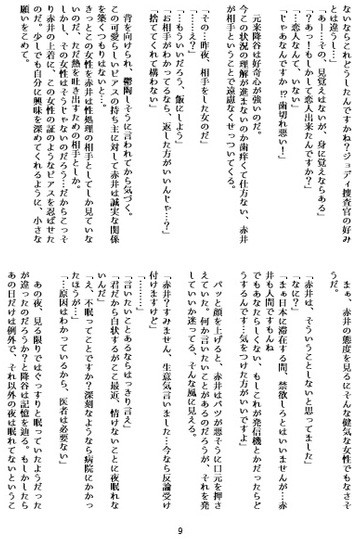 ないならこれどうしたんですかね？ジョディ捜査官の好み
とは違うし…」
「あぁ…その、見覚えはないが、身に覚えならある」
「…？あっ！しかして恋人出来たんですか？」
「…恋人なんていない」
「じゃあなんですか!?歯切れ悪い！」
元来降谷は好奇心が強いのだ。
今この状況の理解が進まないのか歯痒くて仕方ない、赤井
が相手ということで遠慮なくせっついてくる。
「その…昨夜、相手をした女のだ」
「……え？」
「…もういいだろう、飯にしよう」
「お相手がわかってるなら、返した方がいいんじゃ…？」
「捨ててくれて構わない」
背を向けられ、鬱陶しそうに言われてから気づく。
この可愛らしいピアスの持ち主に対して赤井は誠実な関係
を築くつもりはないと…。
きっとこの女性を赤井は性処理の相手としてしか見ていな
いのだ、ただ熱を吐き出すための相手としか。
しかし、その女性はそうじゃないのだろう…だからこそっそ
り赤井の上着に、この女性の証のようなピアスを忍ばせた
のだ。少しでも自分に興味を深めてくれるように、小さな
願いをこめて。
まぁ、赤井の態度を見るにそんな健気な女性でもなさそ
うだ。
「赤井は、そういうことしないと思ってました」
「なに？」
「まぁ日本に滞在する間、禁欲しろとはいいませんが…赤
井も人間ですもんね
でもあなたらしくない、もしこれが発信機とかだったらど
うするんです…気をつけた方がいいですよ」
パッと顔を上げると、赤井はバツが悪そうに口元を押さ
えていた。何か言いたいことがあるのだろうが、それを発
していいか迷ってる、そんな風に見える。
「赤井？すみません、生意気言いました…今なら反論受け
付けますけど」
「…………」
「言いたいことあるならはっきり言え」
「君だから白状するがここ最近、情けないことに夜眠れな
いんだ」
「え、不眠ってことですか？深刻なようなら病院にかかっ
たほうが…」
「…原因はわかっているから、医者は必要ない」
あの夜、見る限りではぐっすりと眠っていたようだった
が違ったのだろうか？と降谷は記憶を辿る。もしかしたら
あの日だけは例外で、それ以外の夜は眠れてないというこ
9